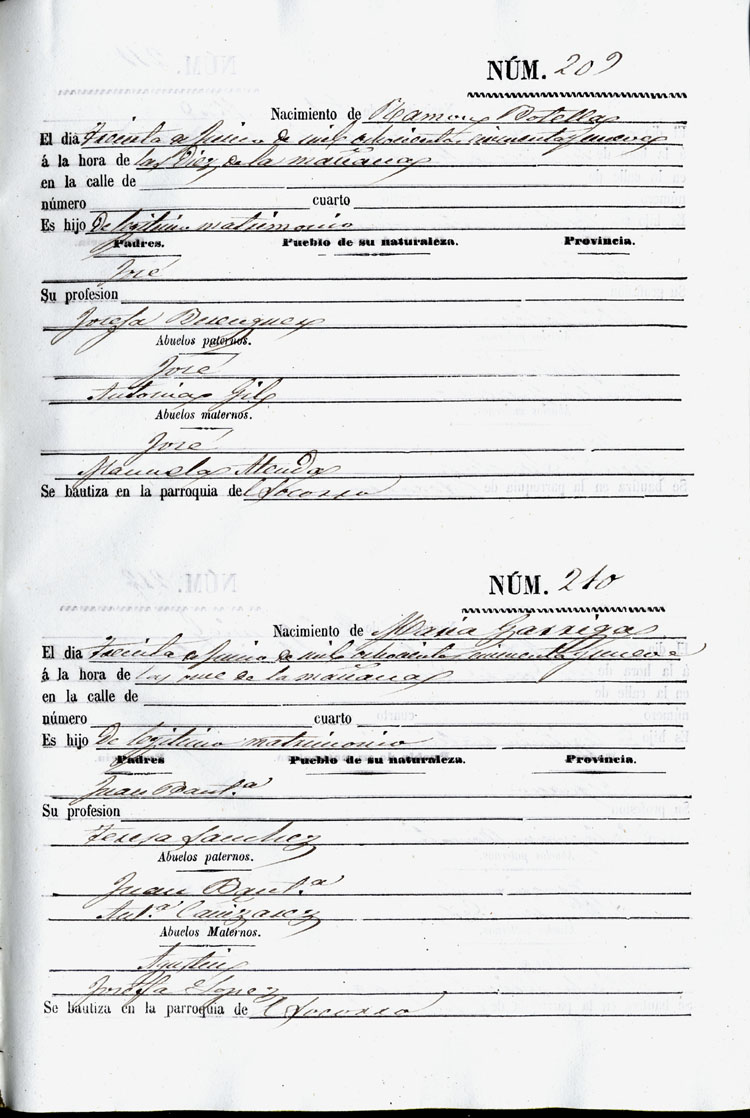 NÚM. 209
Nacimiento de Ramon Botella
El dia treinta de Junio de mil ochocientos cincuenta y nueve
á la hora de las diez de la mañana
en la calle de
número cuarto
Es hijo de legitimo matrimonio
Padres. Pueblo de su naturaleza. Provincia.
José
Su profesion
Josefa Berenguer
Abuelos paternos.
José
Antonia Gil
Abuelos maternos.
José
Manuela
Se bautiza en la parroquia del Socorro
NÚM. 210
Nacimiento de Maria Garriga
El dia treinta de Junio de mil ochocientos cincuenta y nueve
á la hora de las once de la mañana
en la calle de
número cuarto
Es hijo de legitimo matrimonio
Padres Pueblo de su naturaleza. Provincia.
Juan Baut.a
Su profesion
Teresa Sanchez
Abuelos paternos.
Juan Baut.a
Ant.a Cañizares
Abuelos Maternos.
Agustin
Josefa Lopez
Se bautiza en la parroquia del Socorro